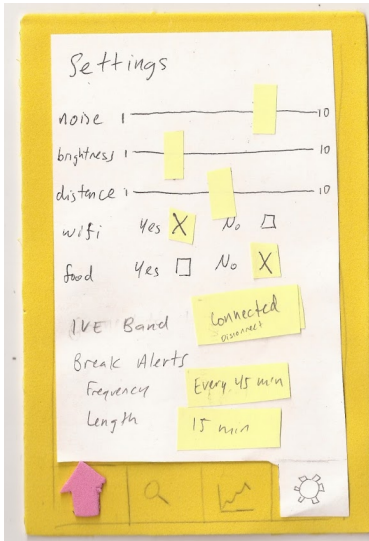 Settings
noise 1 10
brightness 1 10
distance 1 10
wifi Yes X No
food Yes No X
IVE Band Connected
Disconnect
Break Alerts
Frequency Every 45 min
Length 15 min